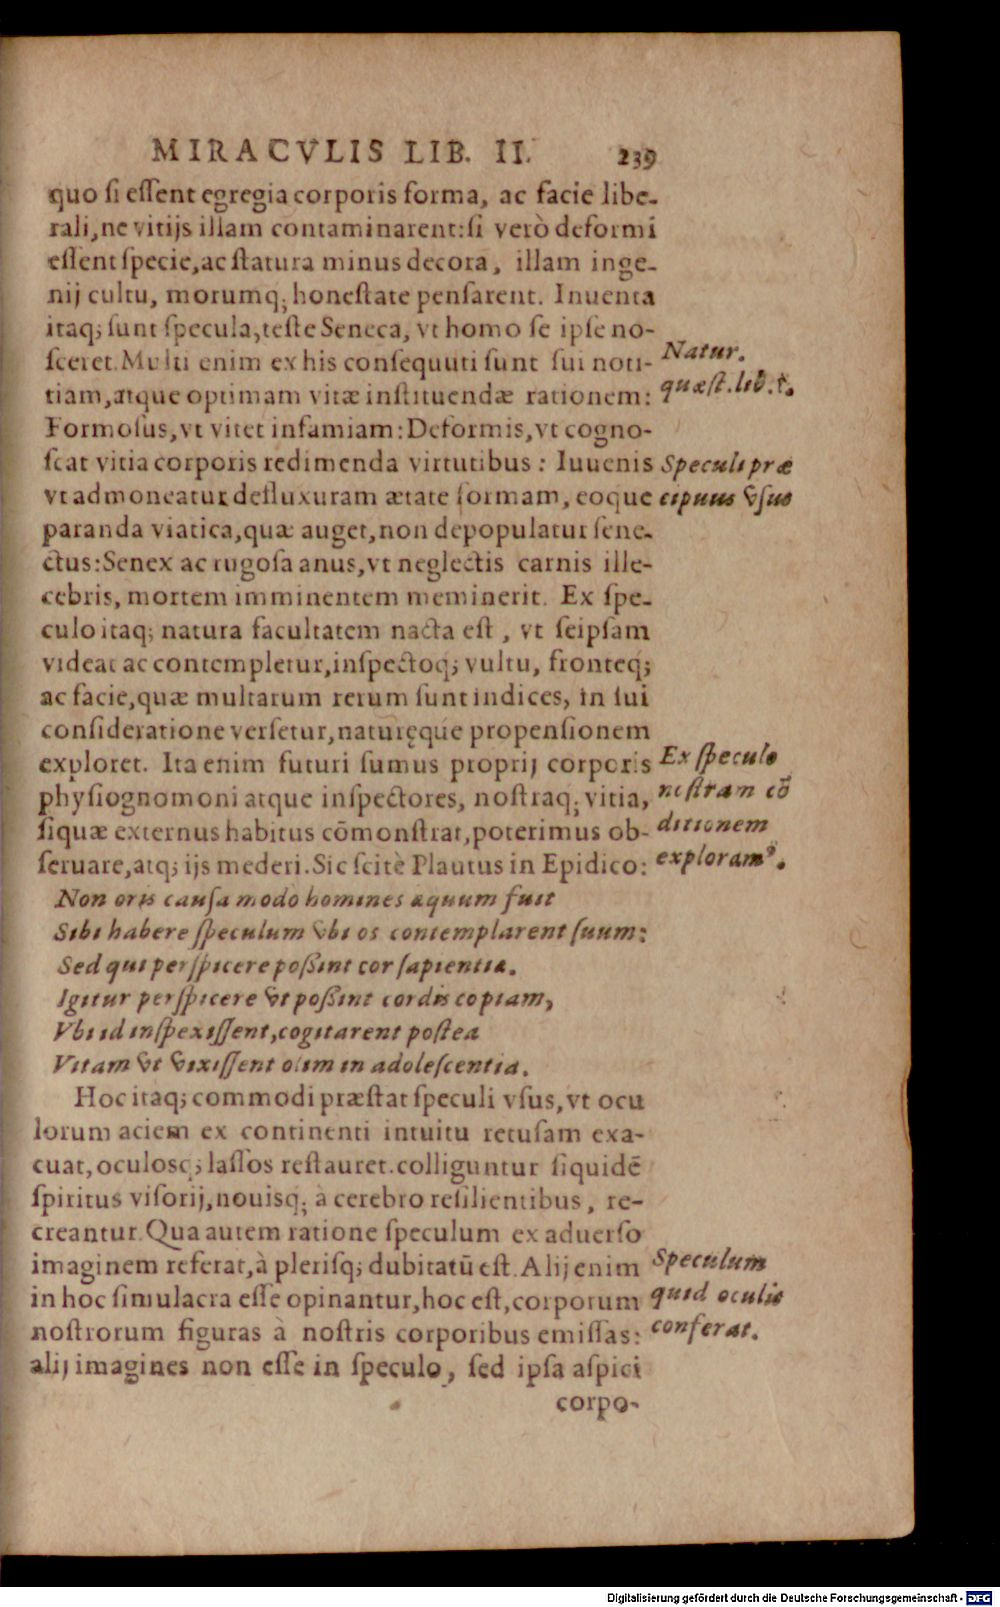 MIRACVLIS LIB. II. 239
quo ſi eſſent egregia corporis forma, ac facie libe-
rali, ne vitijs illam contaminarent: ſi verò deformi
eſſent ſpecie, ac ſtatura minus decora, illam inge-
nij cultu, morumq; honeſtate penſarent. Inuenta
itaq; ſunt ſpecula, teſte Seneca, vt homo ſe ipſe no-
ſceret. Multi enim ex his conſequuti ſunt ſui noti-
tiam, atque optimam vitæ inſtituendæ rationem:
Formoſus, vt vitet infamiam: Deformis, vt cogno-
ſcat vitia corporis redimenda virtutibus: Iuuenis
vt admoneatur defluxuram ætate formam, eoque
paranda viatica, quæ auget, non depopulatur ſene-
ctus: Senex ac rugoſa anus, vt neglectis carnis ille-
cebris, mortem imminentem meminerit. Ex ſpe-
culo itaq; natura facultatem nacta eſt, vt ſeipſam
videat ac contempletur, inſpectoq; vultu, fronteq;
ac facie, quæ multarum rerum ſunt indices, in ſui
conſideratione verſetur, naturęque propenſionem
exploret. Ita enim futuri ſumus proprij corporis
phyſiognomoni atque inſpectores, noſtraq; vitia,
ſiquæ externus habitus cōmonſtrat, poterimus ob-
ſeruare, atq; ijs mederi. Sic ſcitè Plautus in Epidico:
Non oris cauſa modo homines æquum fuit
Sibi habere ſpeculum vbi os contemplarent ſuum:
Sed qui perſpicere poſsint cor ſapientia.
Igitur perſpicere vt poſsint cordis copiam,
Vbi id inſpexiſſent, cogitarent poſtea
Vitam vt vixiſſent olim in adoleſcentia.
Hoc itaq; commodi præſtat ſpeculi vſus, vt ocu
lorum aciem ex continenti intuitu retuſam exa-
cuat, oculosq; laſſos reſtauret. colliguntur ſiquidē
ſpiritus viſorij, nouisq; à cerebro reſilientibus, re-
creantur. Qua autem ratione ſpeculum ex aduerſo
imaginem referat, à pleriſq; dubitatū eſt. Alij enim
in hoc ſimulacra eſſe opinantur, hoc eſt, corporum
noſtrorum figuras à noſtris corporibus emiſſas:
alij imagines non eſſe in ſpeculo, ſed ipſa aſpici
corpo-
Natur.
quæſt. lib. 1.
Speculi præ
cipuus vſus
Ex ſpeculo
noſtram cō
ditionem
exploramꝰ.
Speculum
quid oculis
conferat.
Digitalisierung gefördert durch die Deutsche Forschungsgemeinschaft - DFG